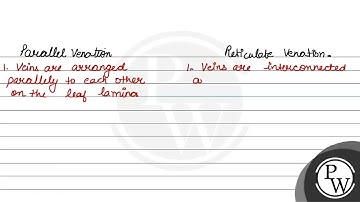 Parallel Venation
Reticulate Venation.
1. Veins are arranged
parallely to each other
on the leaf lamina
1. Veins are interconnected
a
PW
PW